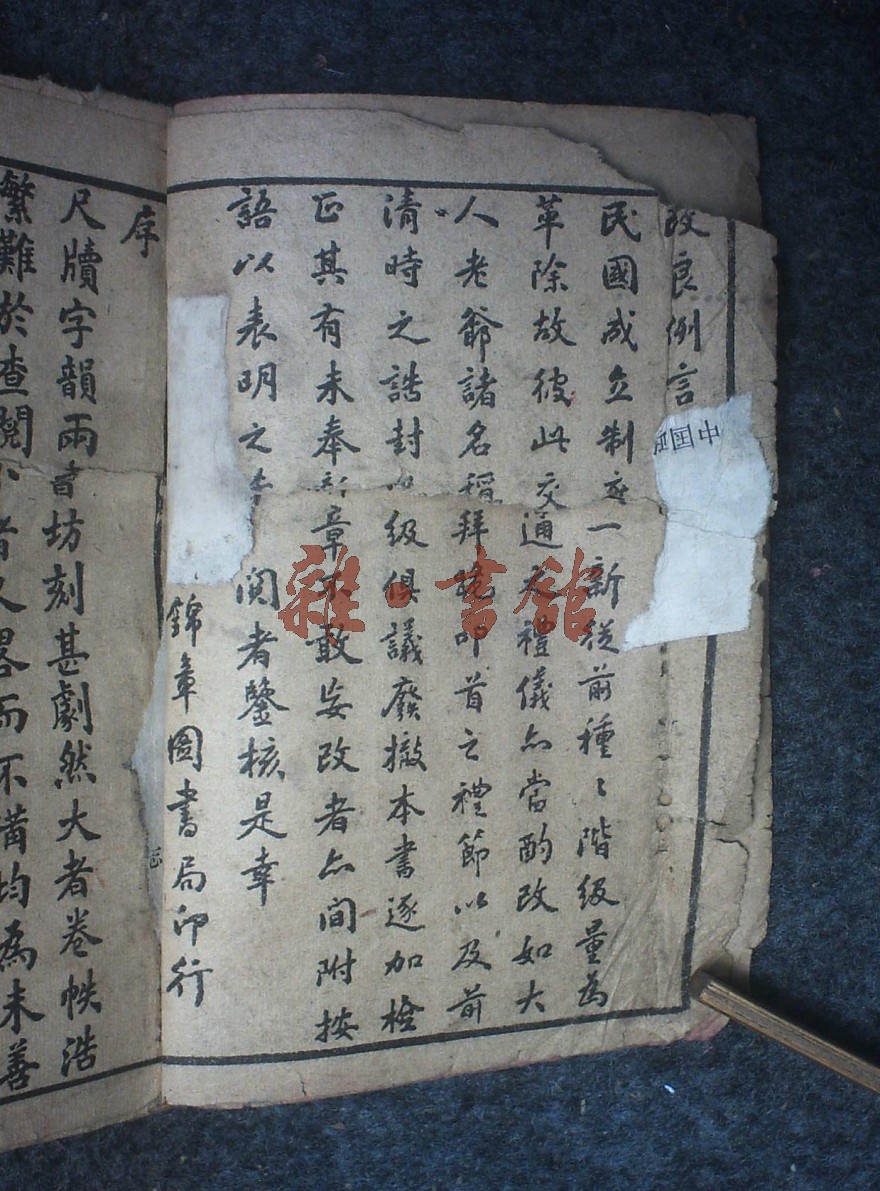 改良例言
民國成立制度一新從前種〻階級量為
革除故彼此交通之禮儀亦當酌改如大
人老爺諸名稱拜跪叩首之禮節以及前
清時之誥封品級俱議廢撤本書逐加檢
正其有未奉新章不敢妄改者亦間附按
語以表明之 閱者鑒核是幸
錦章圖書局印行
序
尺牘字韻兩書坊刻甚劇然大者卷帙浩
繁難於查閱小者又畧而不備均為未善
中国
雜·書館